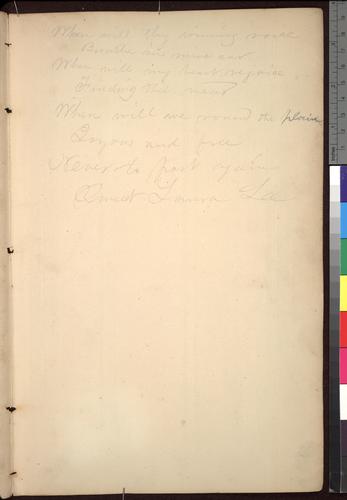 When will thy winning voice
Breathe in mine ear
When will my heart rejoice
Finding thee near
When will we round the plain
Joyous and free
Never to part again
Sweet Laura Lee